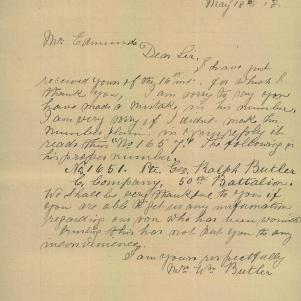 May 18th 18.
Mr Edmunds
Dear Sir,
I have just
received yours of the 16th inst. for which I
thank you, I am sorry to say you
have made a mistake in his number,
I am very sorry if I didn't make the
number plain. in your reply it
reads thus "No 1657." The following is
his proper number,
No, 1651. Pte. Geo. Ralph Butler
C. Company, 50th Battalion.
We shall be very thankful to you if
you are able to get us any information
regarding our son who has been wounded
Trusting this has not put you to any
inconveniency.
I am yours respectfully
Mrs Wm Butler